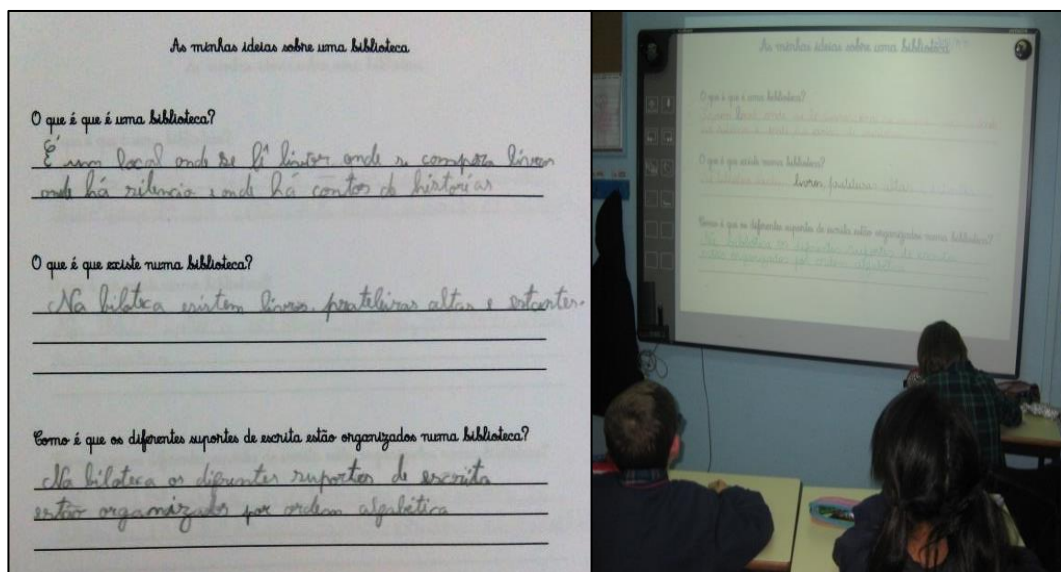 As minhas ideias sobre uma biblioteca
O que é que é uma biblioteca?
É um local onde se lê livros onde se compra livros
onde há silencio e onde há contos de histórias
O que é que existe numa biblioteca?
Na bilateca existem livros, prateleiras altas e estantes.
Como é que os diferentes suportes de escrita estão organizados numa biblioteca?
Na bilateca os difrentes suportes de escrita
estão organizados por ordem algabética
As minhas ideias sobre uma biblioteca
O que é que é uma biblioteca?
O que é que existe numa biblioteca?
livros, prateleiras altas
Como é que os diferentes suportes de escrita estão organizados numa biblioteca?
Na biblioteca os diferentes suportes de escrita
estão organizados por ordem